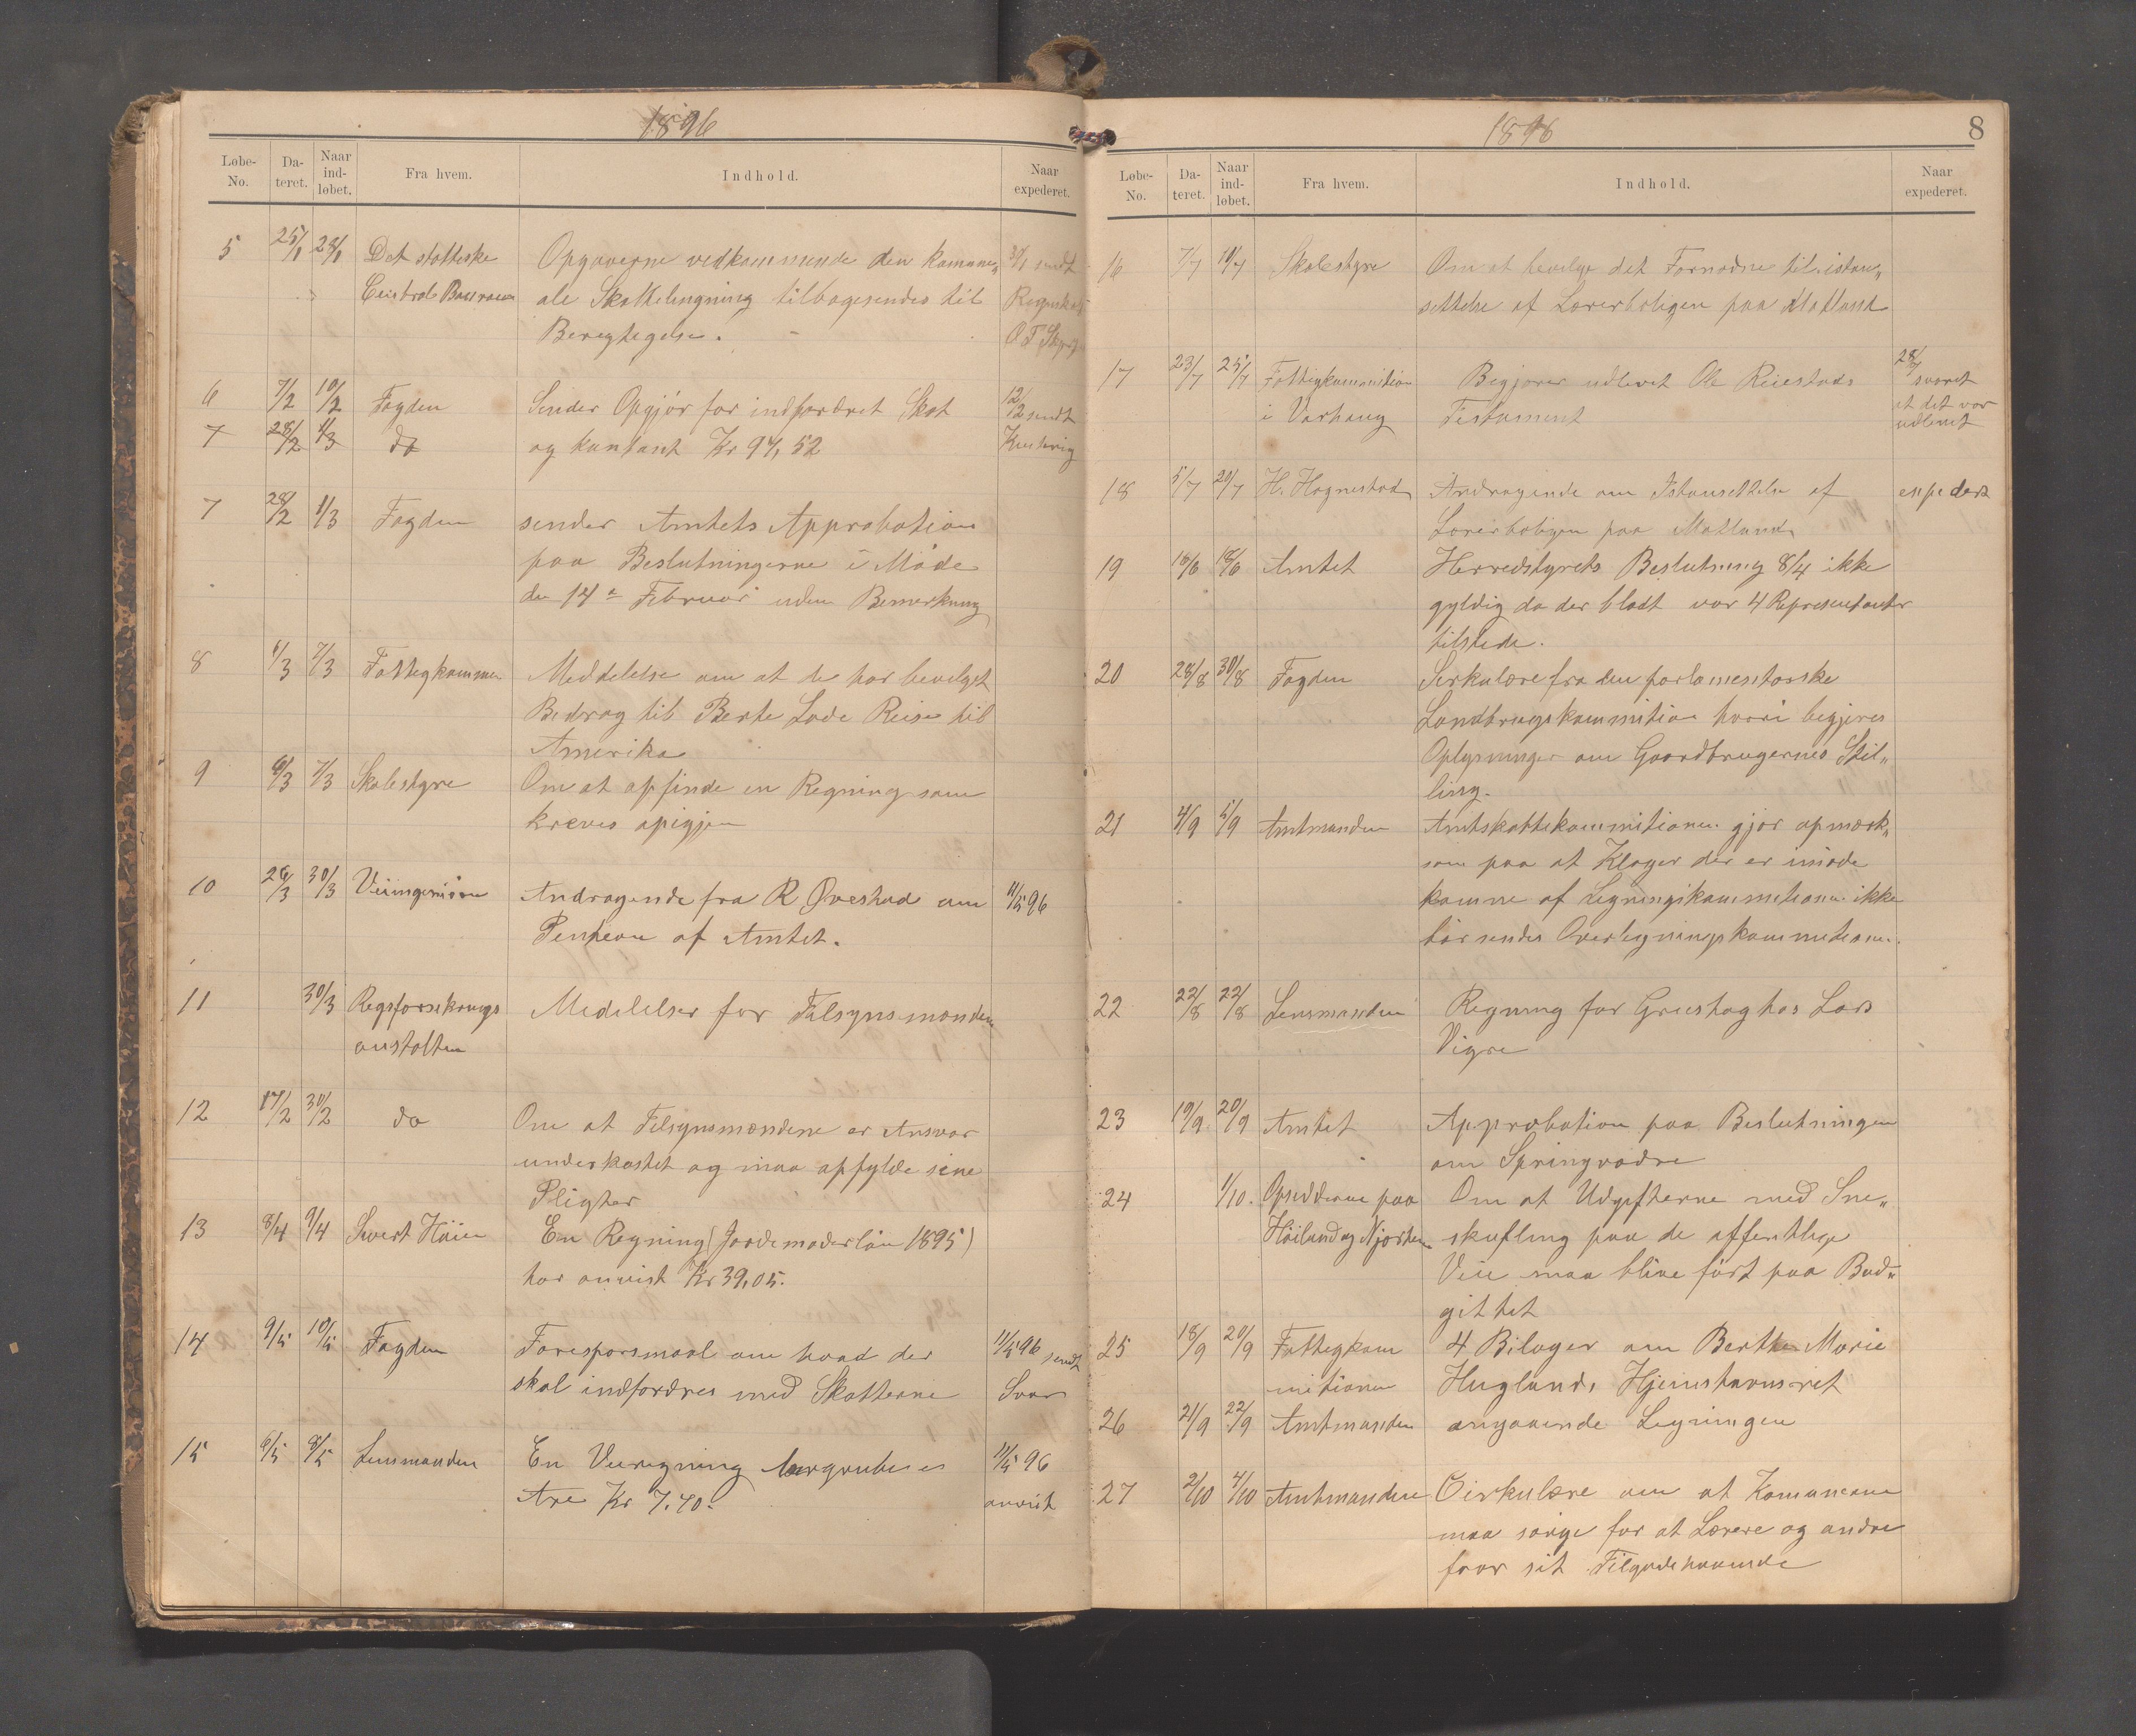 1896
Løbe-No. Da-teret. Naar ind-løbet. Fra hvem. Indhold. Naar expederet.
5 25/1 28/1 Det statteske Opgaverne vedkommende den kommun„ 30/1 sendt
Central Bauraau ale Skatteligning tilbagesendes til Regnskab
Beregtegelse. O. T.
6 7/2 10/2 Fogden Sender Opgjør for indfordret Skat 12/2 sendt
7 28/2 1/3 do og kontant Kr 94,52
7 28/2 1/3 Fogden sender Amtets Approbation
paa Beslutningerne i Møde
den 14de Februar uden Bemerkning
8 1/3 7/3 Fattigkommen Meddelelse om at de har bevelget
Bedrag til Berte Lode Reise til
Amerika
9 6/3 7/3 Skolestyre Om at opfinde en Regning som
kreves opigjen
10 26/3 30/3 Veiingeniøren Andragende fra R Øvestad om 11/5 96
Pension af Amtet.
11 30/3 Regsforsikrings Medelelser for Tilsynsmonden
anstalten
12 17/2 30/2 do Om at Tilsynsmændene er Ansvar
underkastet og maa opfylde sine
Pligter
13 8/4 9/4 Sivert Høien En Regning (Jordemoderløn 1895)
har anvist Kr 39,05.
14 9/5 10/5 Fogden Forespørsmaal om hvad der 11/5 96 sendt
skal indfordres med Skatterne Svar
15 6/5 8/5 Lensmanden En Veiregning 11/5 96
Are Kr 7.40. anvist
1896
8
Løbe-No. Da-teret. Naar ind-løbet. Fra hvem. Indhold. Naar expederet.
16 7/7 10/7 Skolestyre Om at bevelge det Fornødne til istan„
settelse af Lærerboligen paa Motland
17 23/7 25/7 Fattigkommition Begjærer udlevet Ole Reiestads 28/7 svaret
i Varhaug Testament at det var
udlevet
18 5/7 20/7 H. Hognestad Andragende om Istansettelse af expedert
Lærerboligen paa Motland
19 18/6 18/6 Amtet Herredstyrets Beslutning 8/4 ikke
gyldig da der blodt var 4 Representanter
tilstede.
20 28/8 30/8 Fogden Serkulære fra den parlamentarske
Landbrugskommition hvori begjeres
Oplysninger om Gaardbrugernes Stil„
ling.
21 4/9 5/9 Amtmanden Amtskattekommitionen gjør opmærk„
som paa at Klager der er imøde
komne af Legningskommitionen ikke
bør sendes Overlegningskommitionen.
22 22/8 22/8 Lensmanden Regning for Grustag hos Lars
Vigre
23 19/9 20/9 Amtet Approbation paa Beslutningen
om Springvadre
24 1/10. Opsidderne paa Om at Udgifterne med Sne„
Høiland og Njærhem skufling paa de offentlige
Veie maa blive ført paa Bud„
gittet
25 18/9 20/9 Fattegkom 4 Bilager om Berthe Marie
mitionen Huglands Hjemstavnsret
26 21/9 22/9 Amtmanden angaaende Legningen
27 2/10 4/10 Amtmanden Cirkulære om at Komunerne
maa sørge for at Lærere og andre
faar sit Tilgodehavende